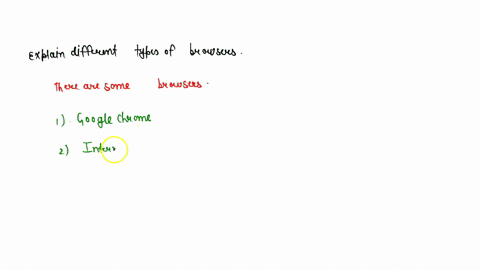 Explain different types of browsers.
There are some browsers.
1) Google Chrome
2) Inter